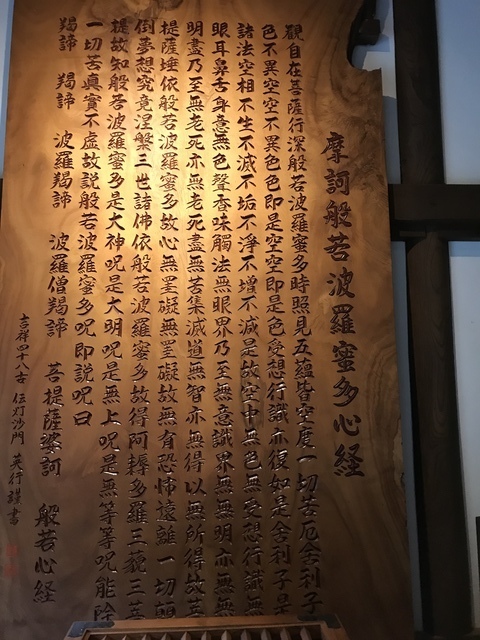 摩訶般若波羅蜜多心経
觀自在菩薩行深般若波羅蜜多時照見五蘊皆空度一切苦厄舍利子
色不異空空不異色色即是空空即是色受想行識亦復如是舍利子是
諸法空相不生不滅不垢不淨不增不減是故空中無色無受想行識無
眼耳鼻舌身意無色聲香味觸法無眼界乃至無意識界無無明亦無無
明盡乃至無老死亦無老死盡無苦集滅道無智亦無得以無所得故菩
提薩埵依般若波羅蜜多故心無罣礙無罣礙故無有恐怖遠離一切顛
倒夢想究竟涅槃三世諸佛依般若波羅蜜多故得阿耨多羅三藐三菩
提故知般若波羅蜜多是大神呪是大明呪是無上呪是無等等呪能除
一切苦真實不虚故説般若波羅蜜多呪即説呪曰
羯諦 羯諦 波羅羯諦 波羅僧羯諦 菩提薩婆訶 般若心経
吉祥四十八古 伝灯沙門 英行謹書